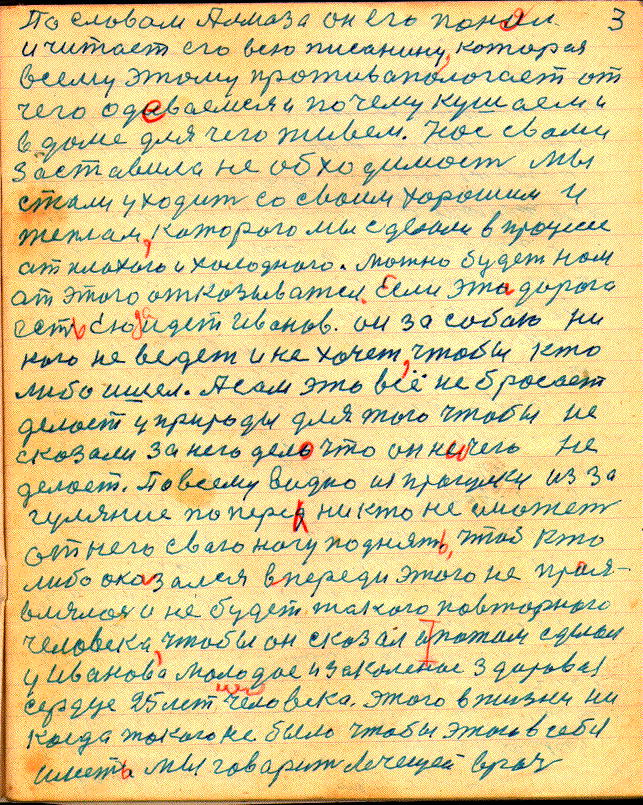 3
По словам Алмаза он его понял
и читает его всю писанину, которая
всему этому противапологает от
чего одеваемся и почему кушаем и
в доме для чего живем. Нас свами
заставила не обходимост мы
стали уходит со своим хорошим и
теплам, которого мы сделали в процессе
ат плахого и холодного. Можно будет нам
ат этого отказыватся. Если эта дорога
есть сюда идет Иванов. он за собою ни
кого не ведет и не хочет, чтобы кто
либо ишел. А сам это всё не бросает
делает у природы для того чтобы не
сказали за него дело что он ничего не
делает. По всему видно их прагулки из за
гуляние поперед никто не может
от него сваго ногу поднять, чтоб кто
либо оказался впереди этого не прая-
влялос и не будет такого повторного
человека, чтобы он сказал и потом сделал
у Иванова молодое и закаленое здоровая
сердце 25 лет человека. Этого в жизни ни
когда такого не было чтобы этого в себя
иметь. Мы гаварит Лечащей врач